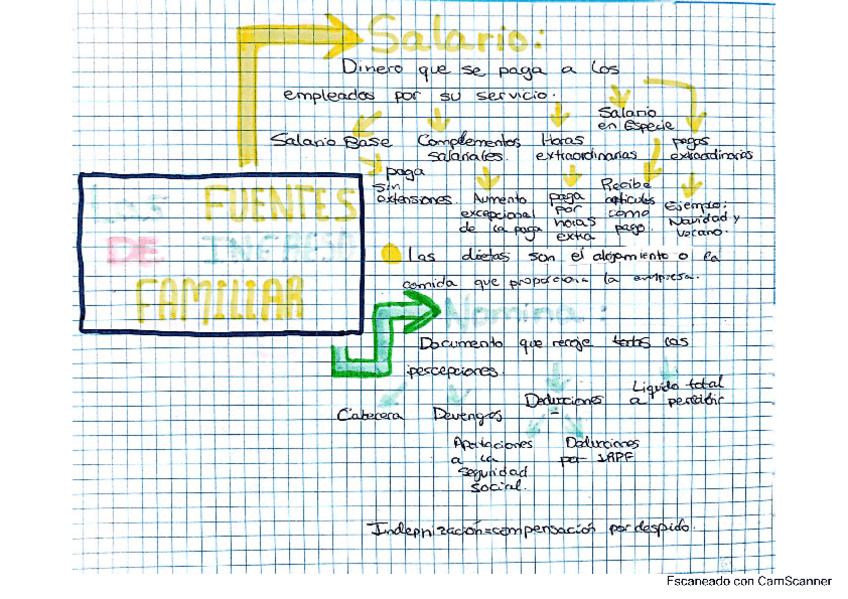 Salario:
Dinero que se paga a los
empleados por su servicio.
Salario Base
Complementos
salariales.
Horas
extraordinarias
Salario
en Especie
pagas
extraordinarias
paga
sin
extensiones.
Aumento
excepcional
de la paga
paga
por
horas
extra
Recibe
artículos
como
pago.
Ejemplo:
Navidad y
verano.
LAS FUENTES
DE INGRESO
FAMILIAR
Las dietas son el alojamiento o la
comida que proporciona la empresa.
Nomina:
Documento que recoje todas las
percepciones.
Cabecera
Devengos
Deducciones
Liquido total
a percibir
Aportaciones
a la
seguridad
social.
Deducciones
por IRPF
Indepnización=compensación por despido.
Escaneado con CamScanner